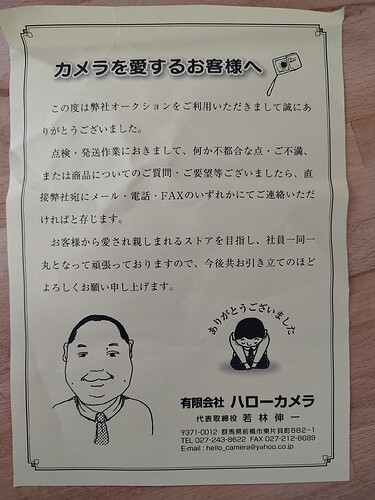 カメラを愛するお客様へ
この度は弊社オークションをご利用いただきまして誠にあ
りがとうございました。
点検・発送作業におきまして、何か不都合な点・ご不満、
または商品についてのご質問・ご要望等ございましたら、直
接弊社宛にメール・電話・FAXのいずれかにてご連絡いただ
ければと存じます。
お客様から愛され親しまれるストアを目指し、社員一同一
丸となって頑張っておりますので、今後共お引き立てのほど
よろしくお願い申し上げます。
ありがとうございました
有限会社 ハローカメラ
代表取締役 若林伸一
〒371-0012 群馬県前橋市東片貝町882-1
TEL 027-243-8622 FAX 027-212-8689
E-mail : hello_camera@yahoo.co.jp